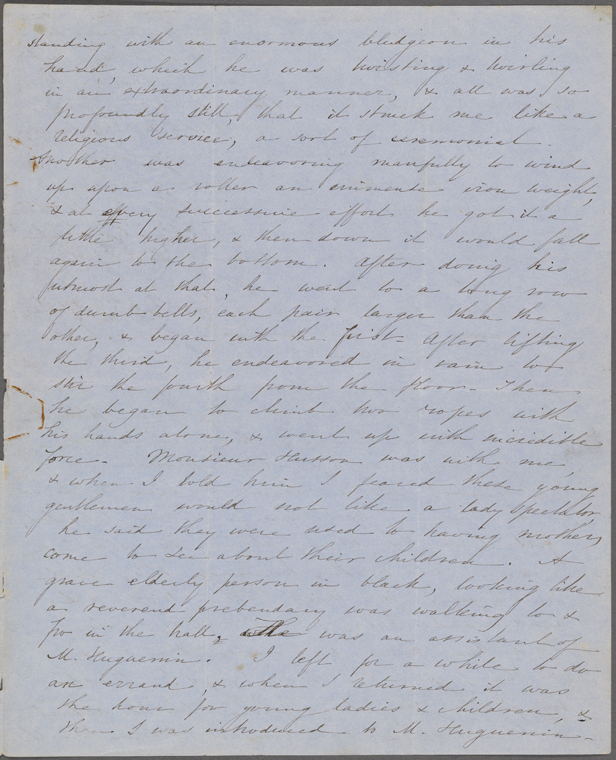 standing with an enormous bludgeon in his
hand, which he was twisting & twirling
in an extraordinary manner, & all was so
profoundly still, that it struck me like a
religious service, a sort of ceremonial.
Another was endeavoring manfully to wind
up upon a roller an immense iron weight,
& at every successive effort he got it a
little higher, & then down it would fall
again to the bottom. After doing his
utmost at that, he went to a long row
of dumb bells, each pair larger than the
other, & began with the first. After lifting
the third, he endeavored in vain to
stir the fourth from the floor. Then
he began to climb two ropes with
his hands alone, & went up with incredible
force. Monsieur Husson was with me,
& when I told him I feared these young
gentlemen would not like a lady spectator,
he said they were used to having mothers
come to see about their children. A
grave elderly person in black, looking like
a reverend prebendary was walking to &
fro in the hall, was an assistant of
M. Huguenin. I left for a while to do
an errand, & when I returned it was
the hour for young ladies & children, &
then I was introduced to M. Huguenin.